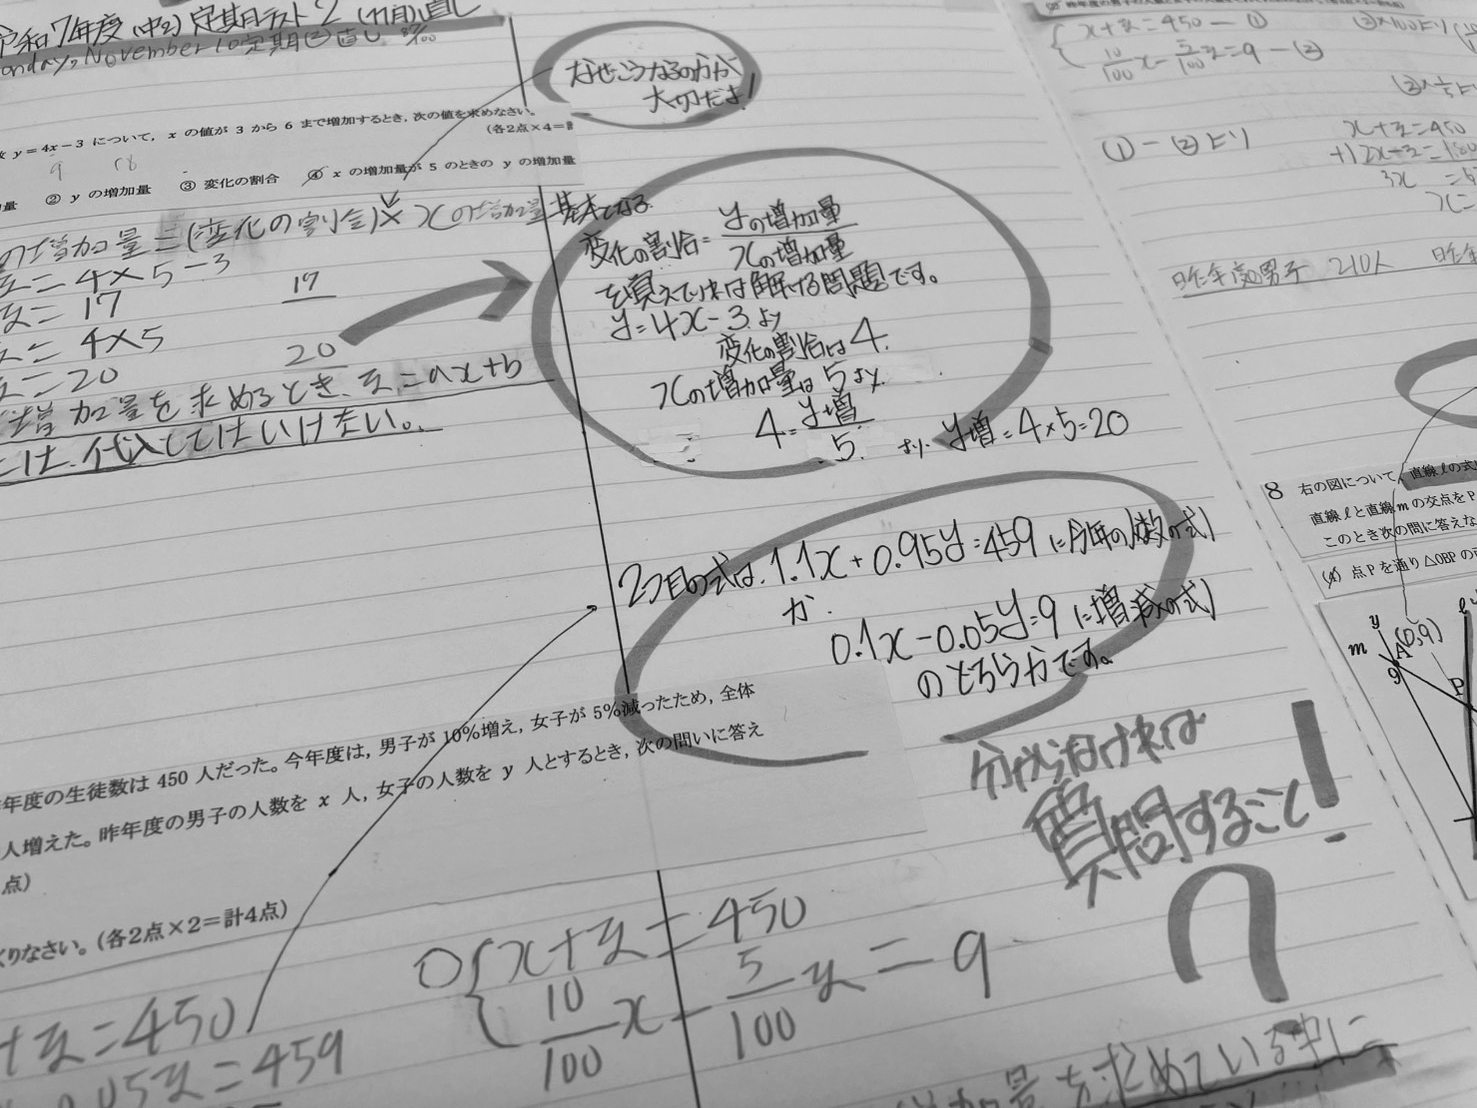 令和7年度(中2)定期テスト2(11月)直し
onday, November 10 定期②直し
なぜこうなるのかが
大切だよ!
y=4x-3 について, x の値が 3 から 6 まで増加するとき, 次の値を求めなさい。
(各2点×4=
9 18
量 ② y の増加量 ③ 変化の割合 ④ x の増加量が 5 のときの y の増加量
の増加量=(変化の割合)×xの増加量
y=4×5-3
y=17
17
y=4×5
y=20
20
増加量を求めるとき、y=ax+b
には、代入してはいけない。
基本となる
変化の割合=yの増加量/xの増加量
を覚えていれば解ける問題です。
y=4x-3より
変化の割合は4.
xの増加量は5より.
4=y増/5. より y増=4×5=20
2つ目の式は、1.1x+0.95y=459(今年の人数の式)
か
0.1x-0.05y=9(増減の式)
のどちらかです。
年度の生徒数は 450 人だった。今年度は, 男子が 10%増え, 女子が 5%減ったため, 全体
人増えた。昨年度の男子の人数を x 人, 女子の人数を y 人とするとき, 次の問いに答え
点)
くりなさい。(各2点×2=計4点)
+y=450
0.05y=459
x+y=450
10/100x-5/100y=9
分からなければ
質問すること!
?
増加量を求めているのに
x+y=450-①
10/100x-5/100y=9-②
②×100より
①-②より
x+y=450
3x
昨年度の男子 210人
8 右の図について, 直線ℓの式
直線ℓと直線mの交点をP
このとき次の問に答えな
(4) 点Pを通り△OBPの
y
m
A(0,9)
9
P
ℓ